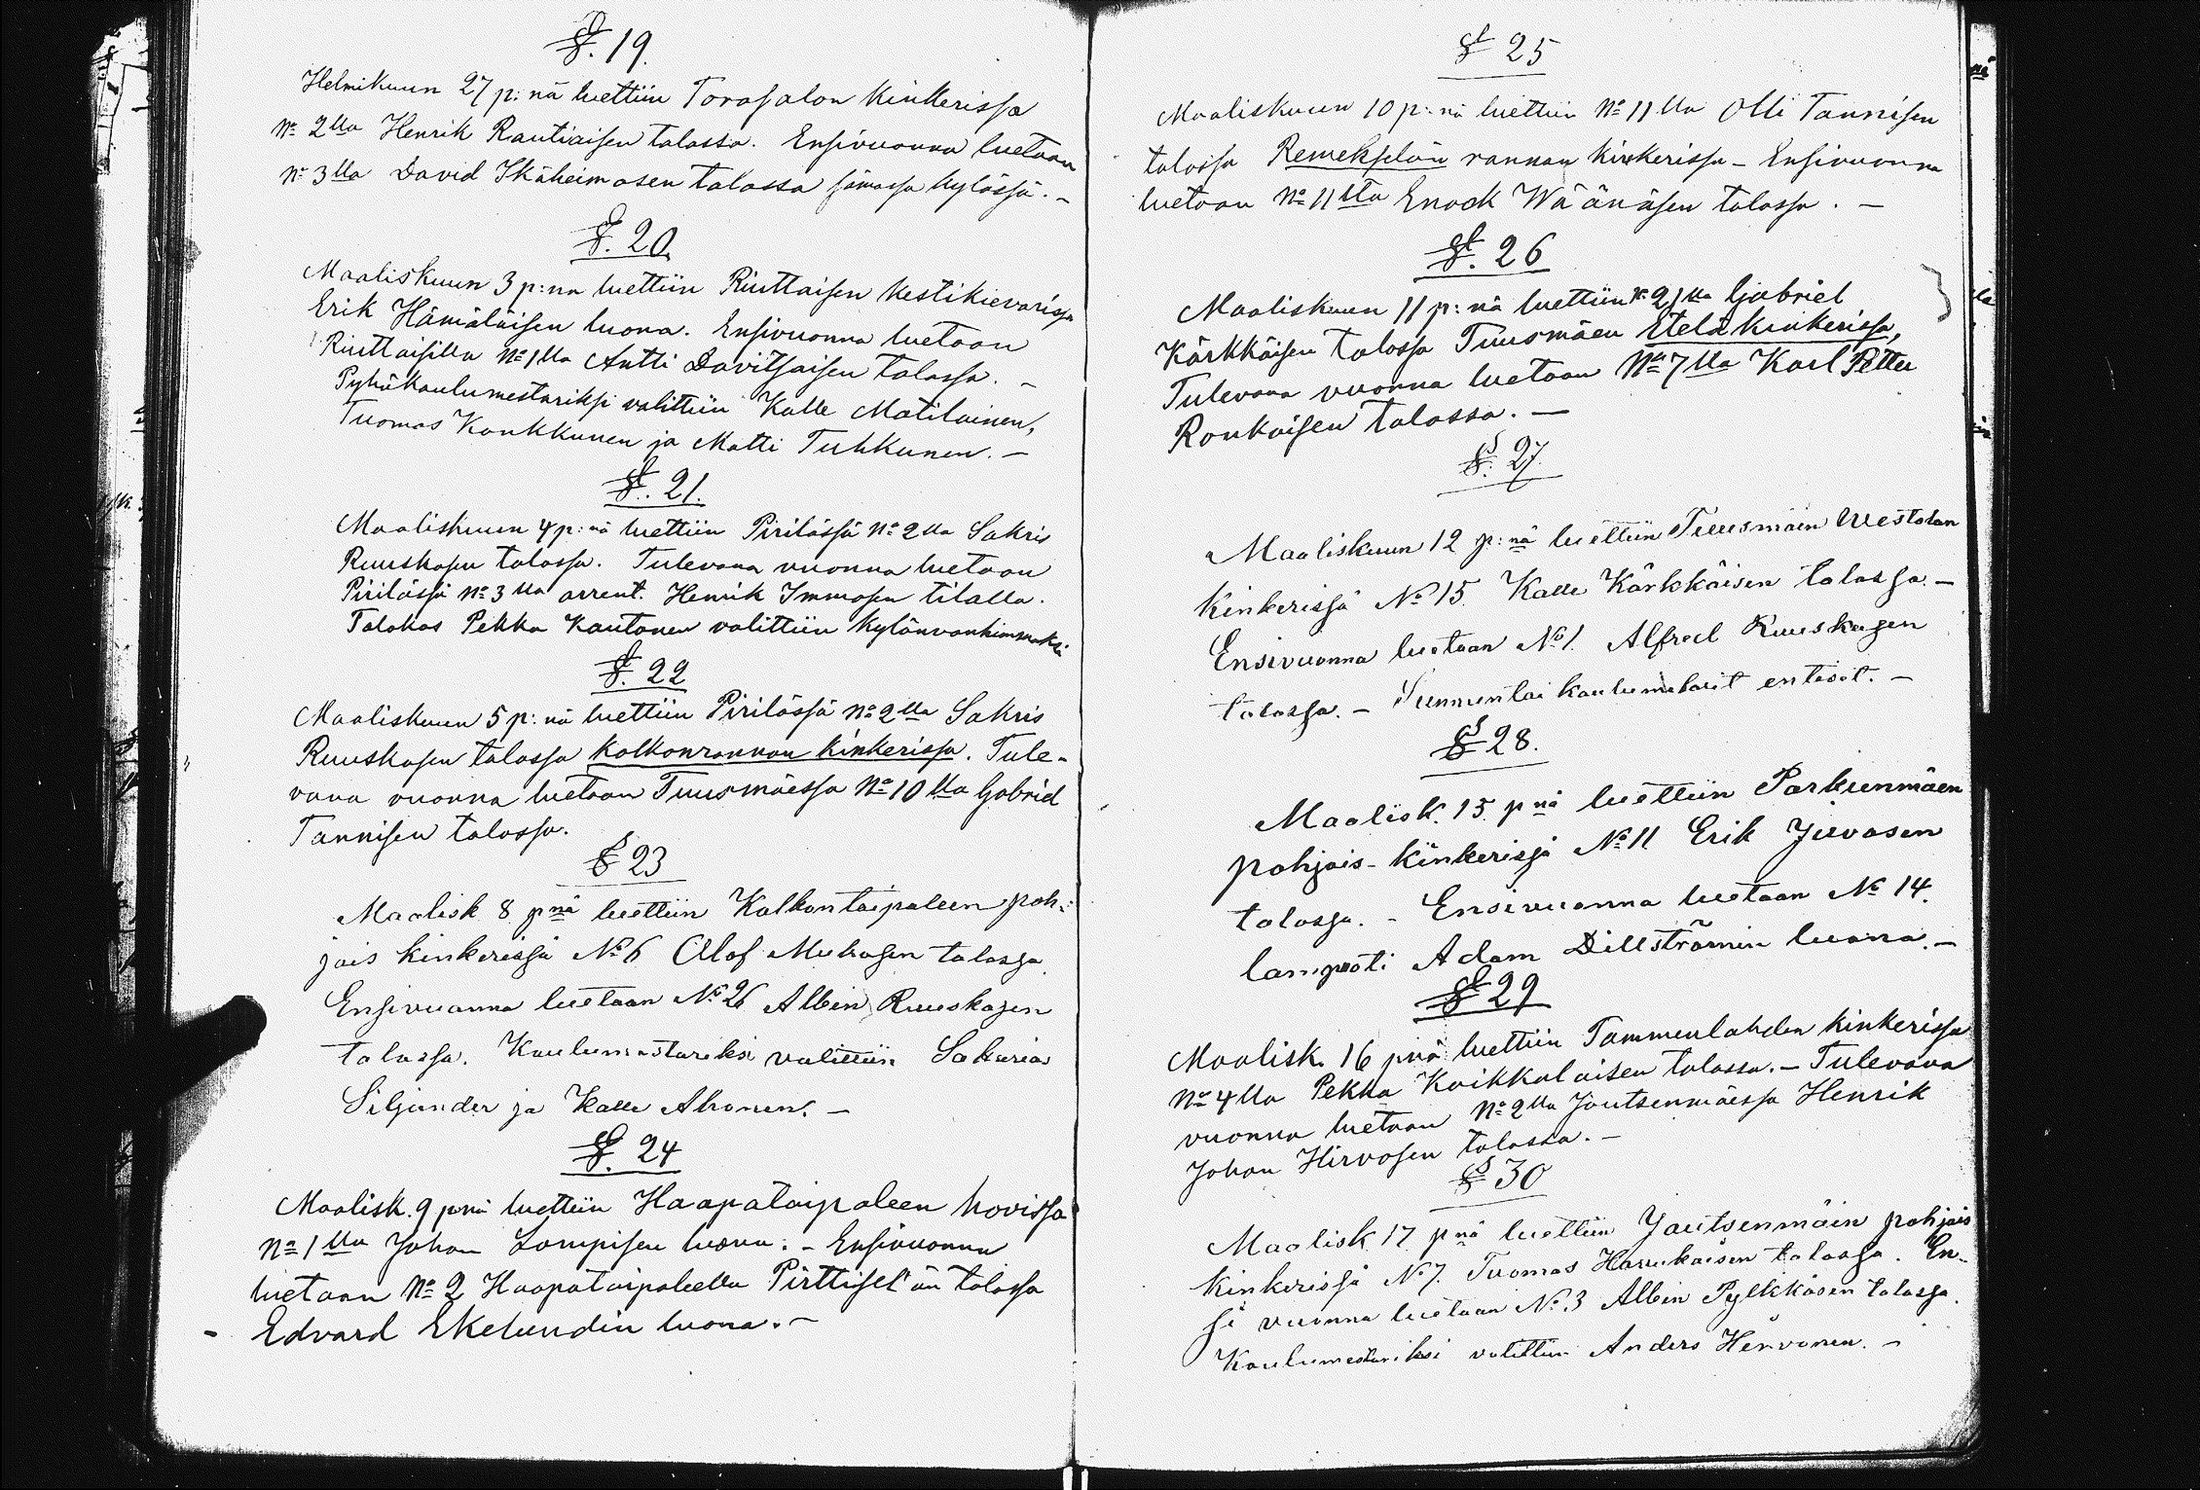 §. 19.
Helmikuun 27 p:nä luettiin Torasalon Kinkerissä
No 2lla Henrik Rautiaisen talossa. Ensivuonna luetaan
No 3lla David Ikäheimosen talossa samassa kylässä. –
§. 20.
Maaliskuun 3 p:nä luettiin Riuttaisen Kestikievarissa
Erik Hämäläisen luona. Ensivuonna luetaan
Riuttaisilla No 1lla Antti Davitsaisen talossa. –
Pyhäkoulumestariksi valittiin Kalle Matilainen,
Tuomas Konkkunen ja Matti Tuhkunen. –
§. 21.
Maaliskuun 4 p:nä luettiin Pirilässä No 2lla Sakris
Ruuskasen talossa. Tulevana vuonna luetaan
Pirilässä No 3lla arrent. Henrik Immosen tilalla.
Talokas Pekka Kautonen valittiin kylänvanhimmaksi
§. 22
Maaliskuun 5 p:nä luettiin Pirilässä No 2lla Sakris
Ruuskasen talossa Kolkonrannan kinkerissä. Tule-
vana vuonna luetaan Tuusmäessä No 10lla Gabriel
Tannisen talossa.
§ 23
Maalisk 8 pnä luettiin Kolkontaipaleen poh-
jais kinkerissä No 6 Olof Muhosen talossa
Ensivuonna luetaan No 26 Albin Ruuskasen
talossa. Koulumestareksi valittiin Sakarias
Siljander ja Kalle Ahonen. –
§. 24
Maalisk. 9 pnä luettiin Haapataipaleen hovissa
No 1lla Johan Lompisen luona. – Ensivuonna
luetaan No 2 Haapataipaleella Pirttiselän talossa
– Edvard Ekelundin luona. –
§ 25
Maaliskuun 10 p:nä luettiin No 11lla Olli Tannisen
talossa Remekselän rannan kinkerissä – Ensivuonna
luetaan No 11lla Enock Wäänäsen talossa. –
§. 26
Maaliskuun 11 p:nä luettiin No 21lla Gabriel
Kärkkäisen talossa Tuusmäen Etelä kinkerissä,
Tulevana vuonna luetaan No 7lla Karl Petter
Ronkaisen talossa. –
§. 27.
Maaliskuun 12 p:nä luettiin Tuusmäen Westolan
kinkerissä No 15 Kalle Kärkkäisen talossa. –
Ensivuonna luetaan No 1. Alfred Ruuskasen
talossa. – Sunnuntai koulumestarit entiset. –
§ 28.
Maalisk. 15. pnä luettiin Parkunmäen
pohjois-kinkerissä No 11 Erik Juvosen
talossa. – Ensivuonna luetaan No 14.
lampuoti Adam Dillströmin luona. –
§ 29
Maalisk. 16 pnä luettiin Tammenlahden kinkerissä
No 4lla Pekka Koikkalaisen talossa. – Tulevana
vuonna luetaan No 2lla Joutsenmäessä Henrik
Johan Hirvosen talossa. –
§ 30
Maalisk. 17. pnä luettiin Joutsenmäin pohjois
kinkerissä No 7. Tuomas Haukaisen talossa. En-
si vuonna luetaan No 3 Albin Pylkkäsen talossa.
Koulumestariksi valittiin Anders Hirvonen. –